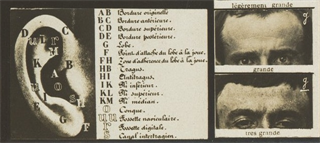 D
C
B
A
K
O
M
H
I
E
G
F
AB Bordure originelle
BC Bordure antérieure.
CD Bordure supérieure.
DE Bordure postérieure.
G Lobe.
F Point d'attache du lobe à la joue.
FH Zone d'adhérence du lobe à la joue.
HB Tragus.
HI Antitragus.
IK Pli inférieur.
KL Pli supérieur.
KM Pli médian.
O Conque.
Fossette naviculaire.
Fossette digitale.
Canal intertragien.
légèrement grande
grande
très grande